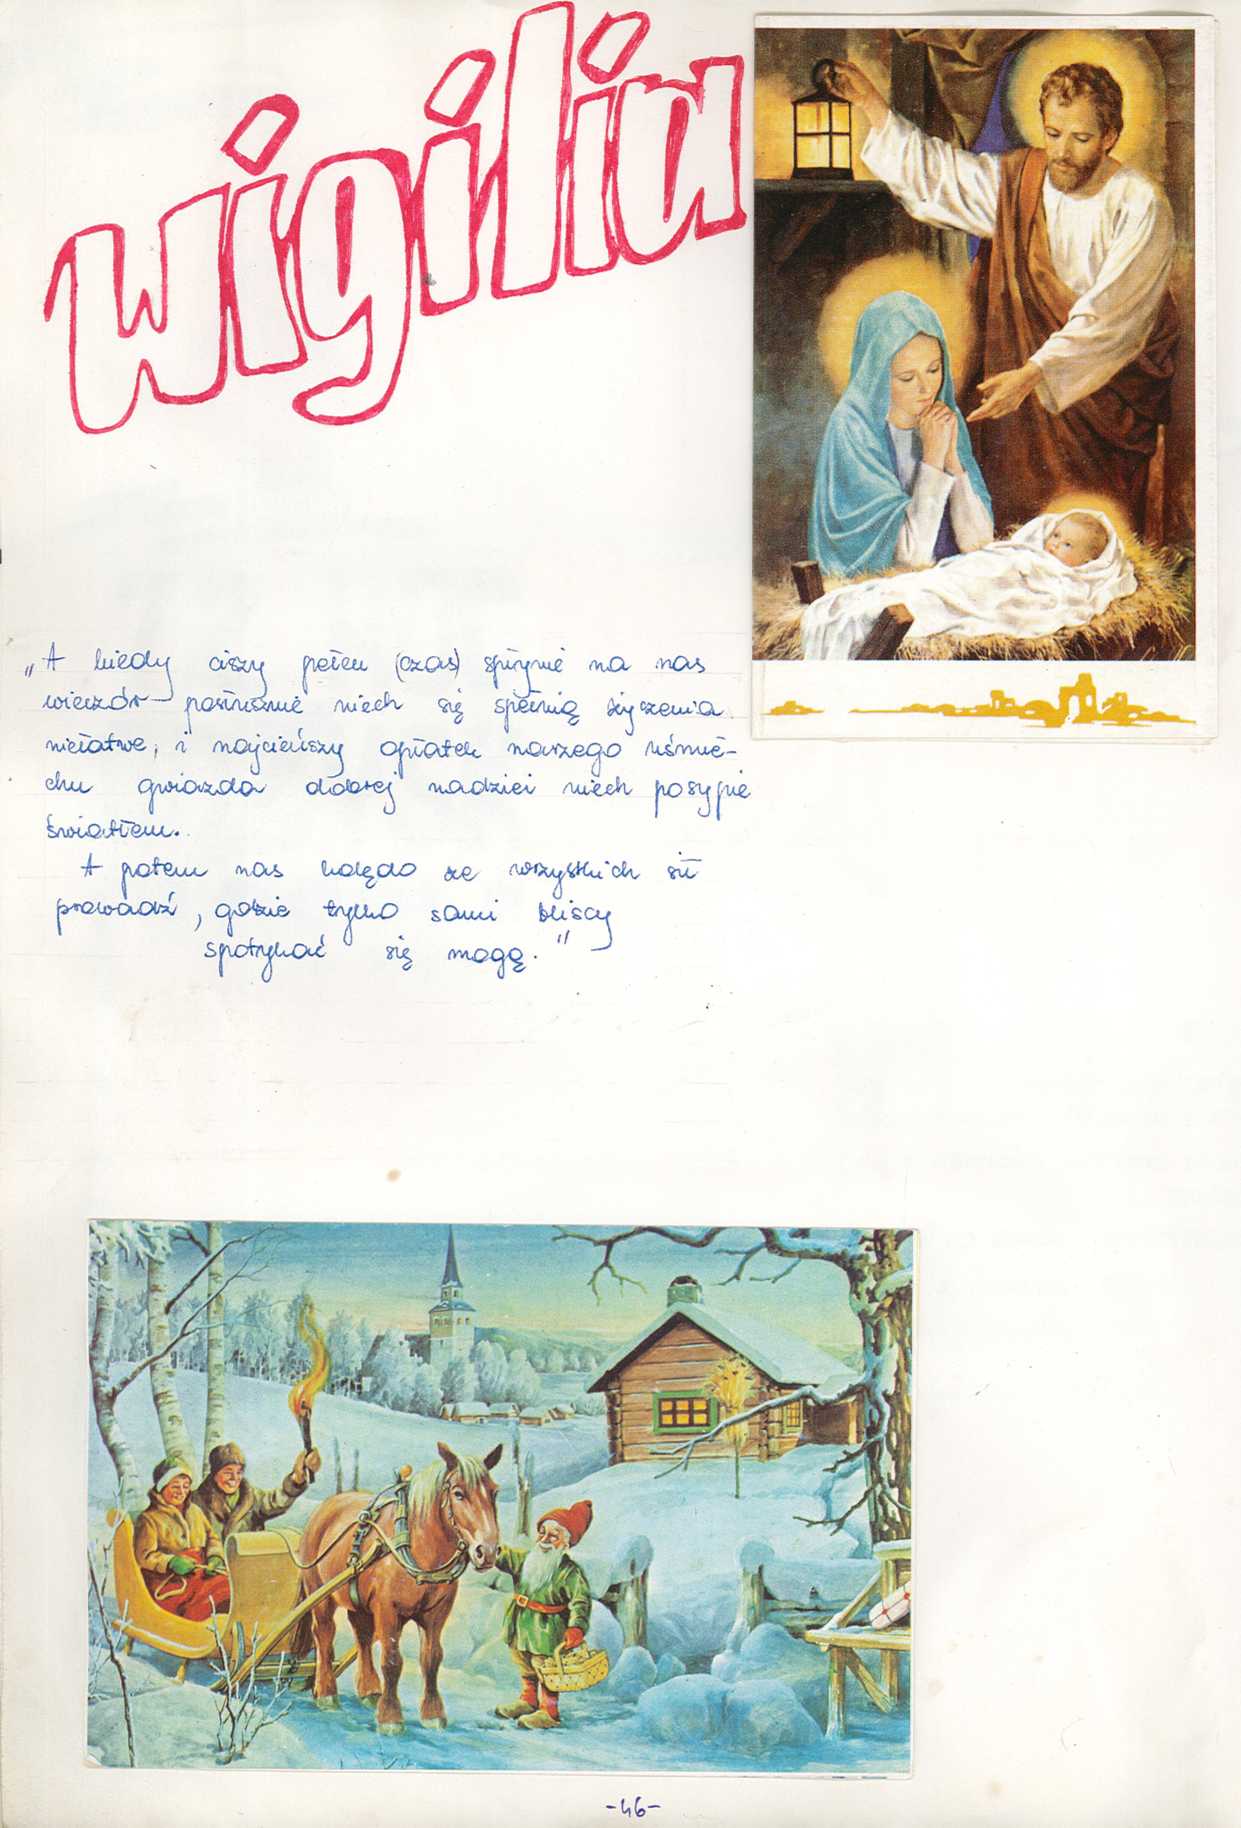 wigilia
„A kiedy ciszy pełen (czas) spłynie na nas
wieczór posłusznie niech się spełnią życzenia
niełatwe, i najcieńszy opłatek naszego uśmie-
chu gwiazda dobrej nadziei niech posypie
światłem.
A potem nas kolędo ze wszystkich sił
prowadź, gdzie tylko sami bliscy
spotykać się mogą."
-46-